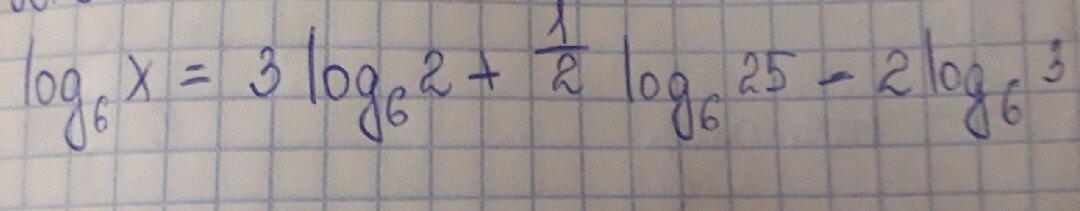 log₆ x = 3 log₆ 2 + 1/2 log₆ 25 - 2 log₆ 3